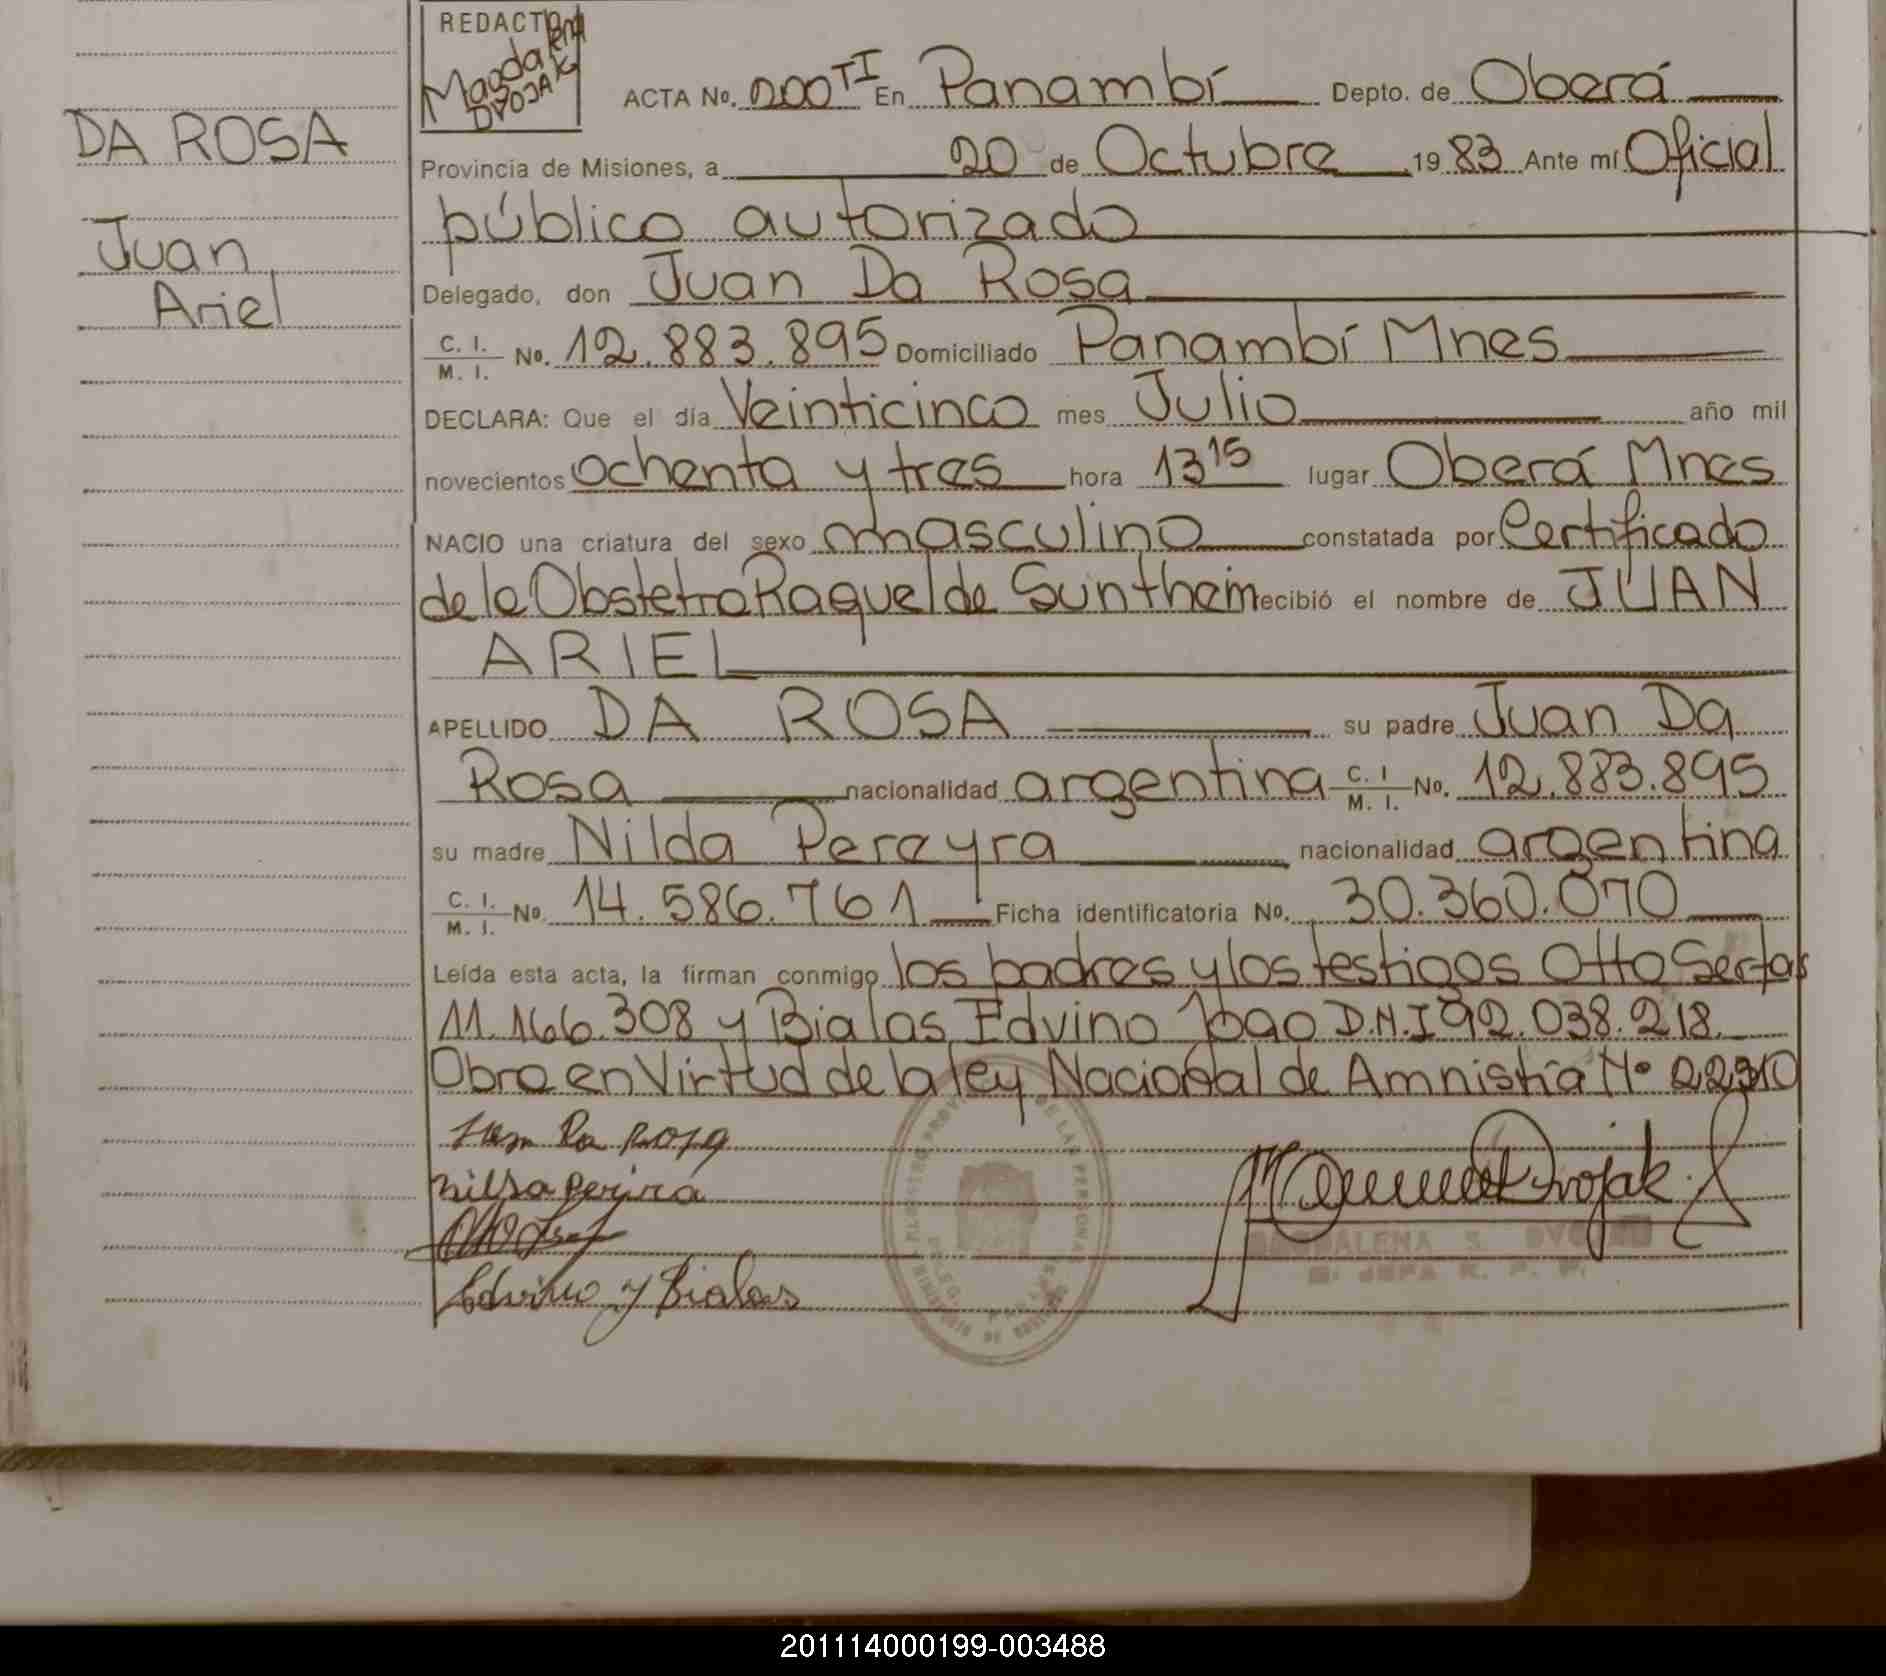 REDACTÓ
Magdalena
DVOJAK
ACTA No. 200 TI En Panambí Depto. de Oberá
DA ROSA
Provincia de Misiones, a 20 de Octubre 1983 Ante mí Oficial
público autorizado
Juan
Ariel
Delegado, don Juan Da Rosa
C. I. M. I. No. 12.883.895 Domiciliado Panambí Mnes
DECLARA: Que el día Veinticinco mes Julio año mil
novecientos ochenta y tres hora 13 15 lugar Oberá Mnes
NACIO una criatura del sexo masculino constatada por Certificado
de la Obstetra Raquel de Sunthem recibió el nombre de JUAN
ARIEL
APELLIDO DA ROSA su padre Juan Da
Rosa nacionalidad argentina C. I M. I. No. 12.883.895
su madre Nilda Pereyra nacionalidad argentina
C. I. M. I. No. 14.586.761 Ficha identificatoria No. 30.360.070
Leída esta acta, la firman conmigo los padres y los testigos Otto
11.166.308 y Bialas Edvino Joao D.N.I 92.038.218.
Obra en Virtud de la ley Nacional de Amnistía Nº
Juan Da Rosa
Nilda Pereira
Edvino y Bialas
Dvojak
MAGDALENA S. DVOJAK
201114000199-003488